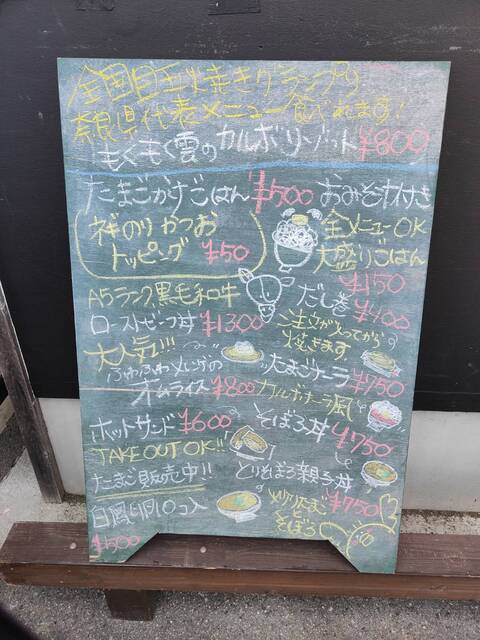 全国目玉焼きグランプリ
奈良県代表メニュー食べれます！
もくもく雲のカルボリゾット ¥800
たまごかけごはん ¥500 おみそ汁付き
のり かつお
トッピング ¥50
全メニューOK
大盛りごはん
¥150
A5ランク黒毛和牛
ローストビーフ丼 ¥1300
だし巻 ¥400
ご注文が入ってから
焼きます
大人気!!!
ふわふわメレンゲの
オムライス ¥800
たまごナーラ ¥750
カルボナーラ風
ホットサンド ¥600
TAKE OUT OK!!
そぼろ丼 ¥750
とりそぼろ親子丼
¥750
そぼろ
たまご販売中!!
白鳳卵10コ入
¥500